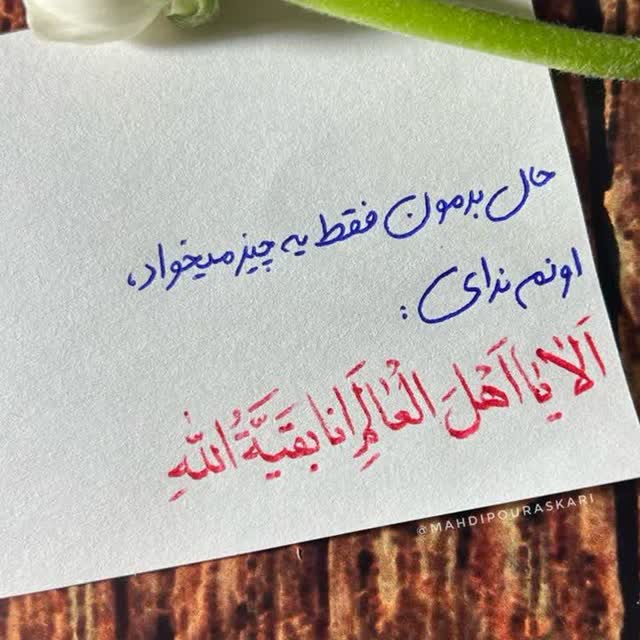 حال بدمون فقط یه چیز میخواد،
اونم ندای :
اَلا یا اَهلَ العالَمِ اَنا بَقیَّةُ اللهِ
@MAHDIPOURASKARI